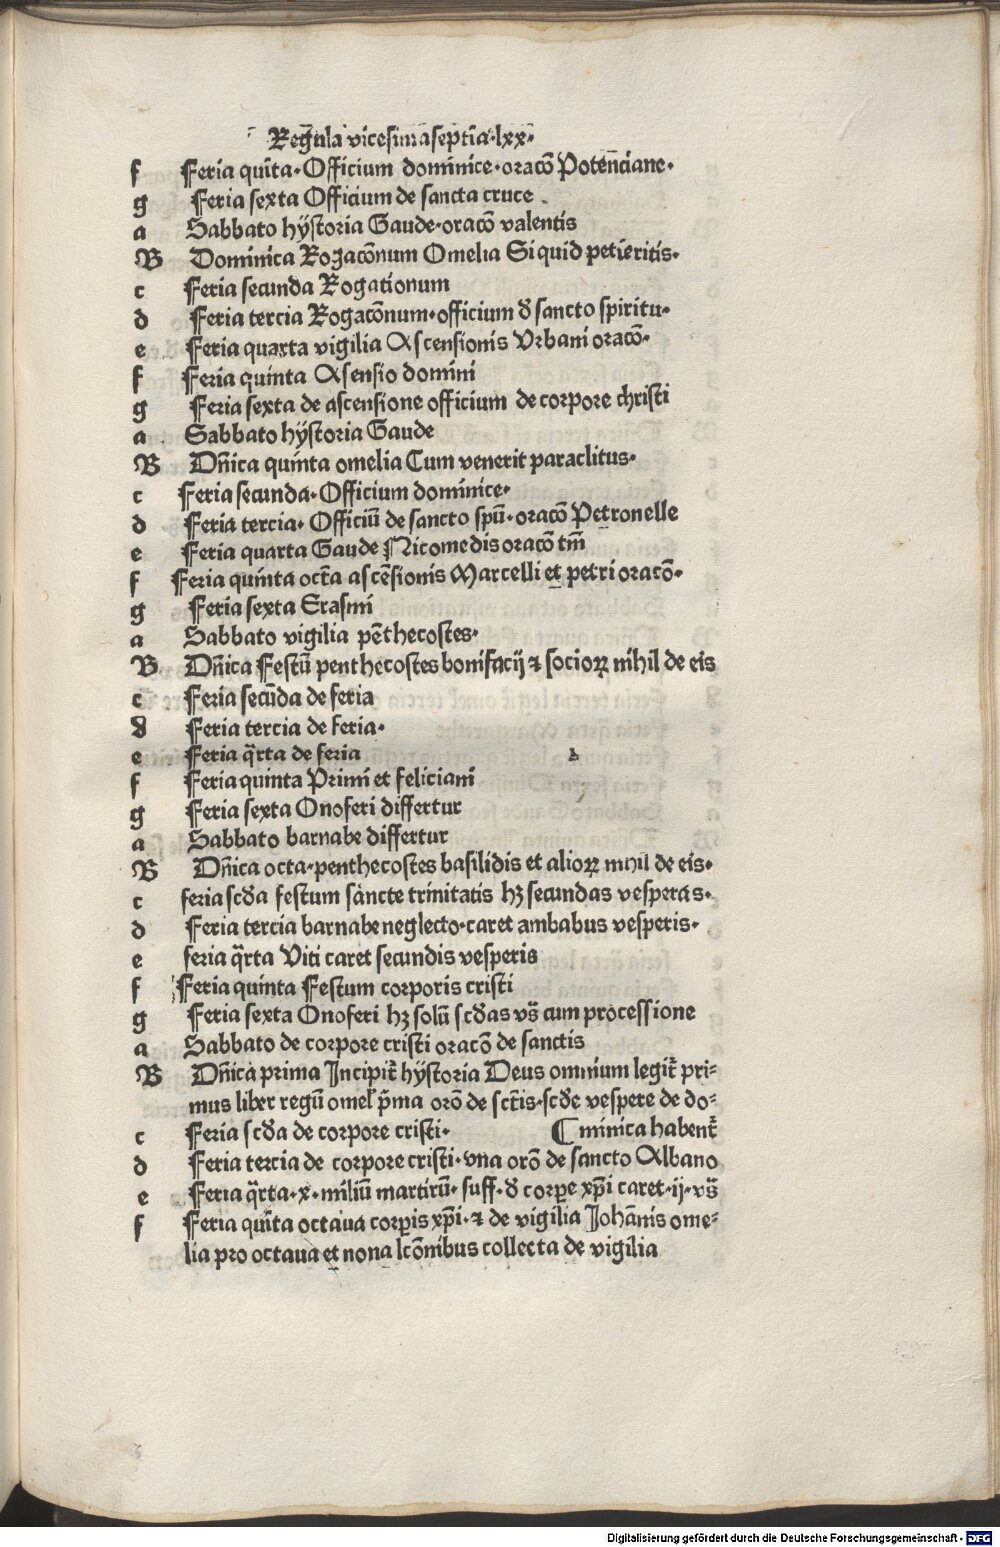 Regula vicesimaseptīa·lxx·
f Feria quīta·Officium dominice·oracō Potenciane·
g Feria sexta Officium de sancta cruce
a Sabbato hÿstoria Gaude·oracō valentis
B Dominica Rogacōnum Omelia Si quid petieritis·
c Feria secunda Rogationum
d Feria tercia Rogacōnum·officium d̄ sancto spiritu·
e Feria quarta vigilia Ascensionis Urbani oracō·
f Feria quinta Asensio domini
g Feria sexta de ascensione officium de corpore christi
a Sabbato hÿstoria Gaude
B Dn̄ica quinta omelia Cum venerit paraclitus·
c Feria secunda·Officium dominice·
d Feria tercia·Officiū de sancto spū·oracō Petronelle
e Feria quarta Gaude Nicomedis oracō tm̄
f Feria quinta oct̄a ascēsionis Marcelli et petri oracō·
g Feria sexta Erasmi
a Sabbato vigilia pēthecostes·
B Dn̄ica Festū penthecostes bonifacij ⁊ socioꝝ nihil de eis
c Feria secūda de feria
d Feria tercia de feria·
e Feria q̄rta de feria
f Feria quinta Primi et feliciani
g Feria sexta Onoferi differtur
a Sabbato barnabe differtur
B Dn̄ica octa·penthecostes basilidis et alioꝝ nihil de eis·
c feria scd̄a festum sancte trinitatis hꝫ secundas vesperas·
d Feria tercia barnabe neglecto·caret ambabus vesperis·
e feria q̄rta Viti caret secundis vesperis
f Feria quinta Festum corporis cristi
g Feria sexta Onoferi hꝫ solū scd̄as vs̄ cum processione
a Sabbato de corpore cristi oracō de sanctis
B Dn̄ica prima Incipit̄ hÿstoria Deus omnium legit̄ pri⸗
mus liber regū omel̄ p̄ma orō de sct̄is·scd̄e vespere de do⸗
c Feria scd̄a de corpore cristi· ⸿ minica habent̄
d Feria tercia de corpore cristi·vna orō de sancto Albano
e Feria q̄rta·x·miliū martirū·suff·d̄ corꝑe xp̄i caret·ij·vs̄
f Feria quīta octaua corꝑis xp̄i·⁊ de vigilia Johānis ome⸗
lia pro octaua et nona lcōnibus collecta de vigilia
Digitalisierung gefördert durch die Deutsche Forschungsgemeinschaft - DFG